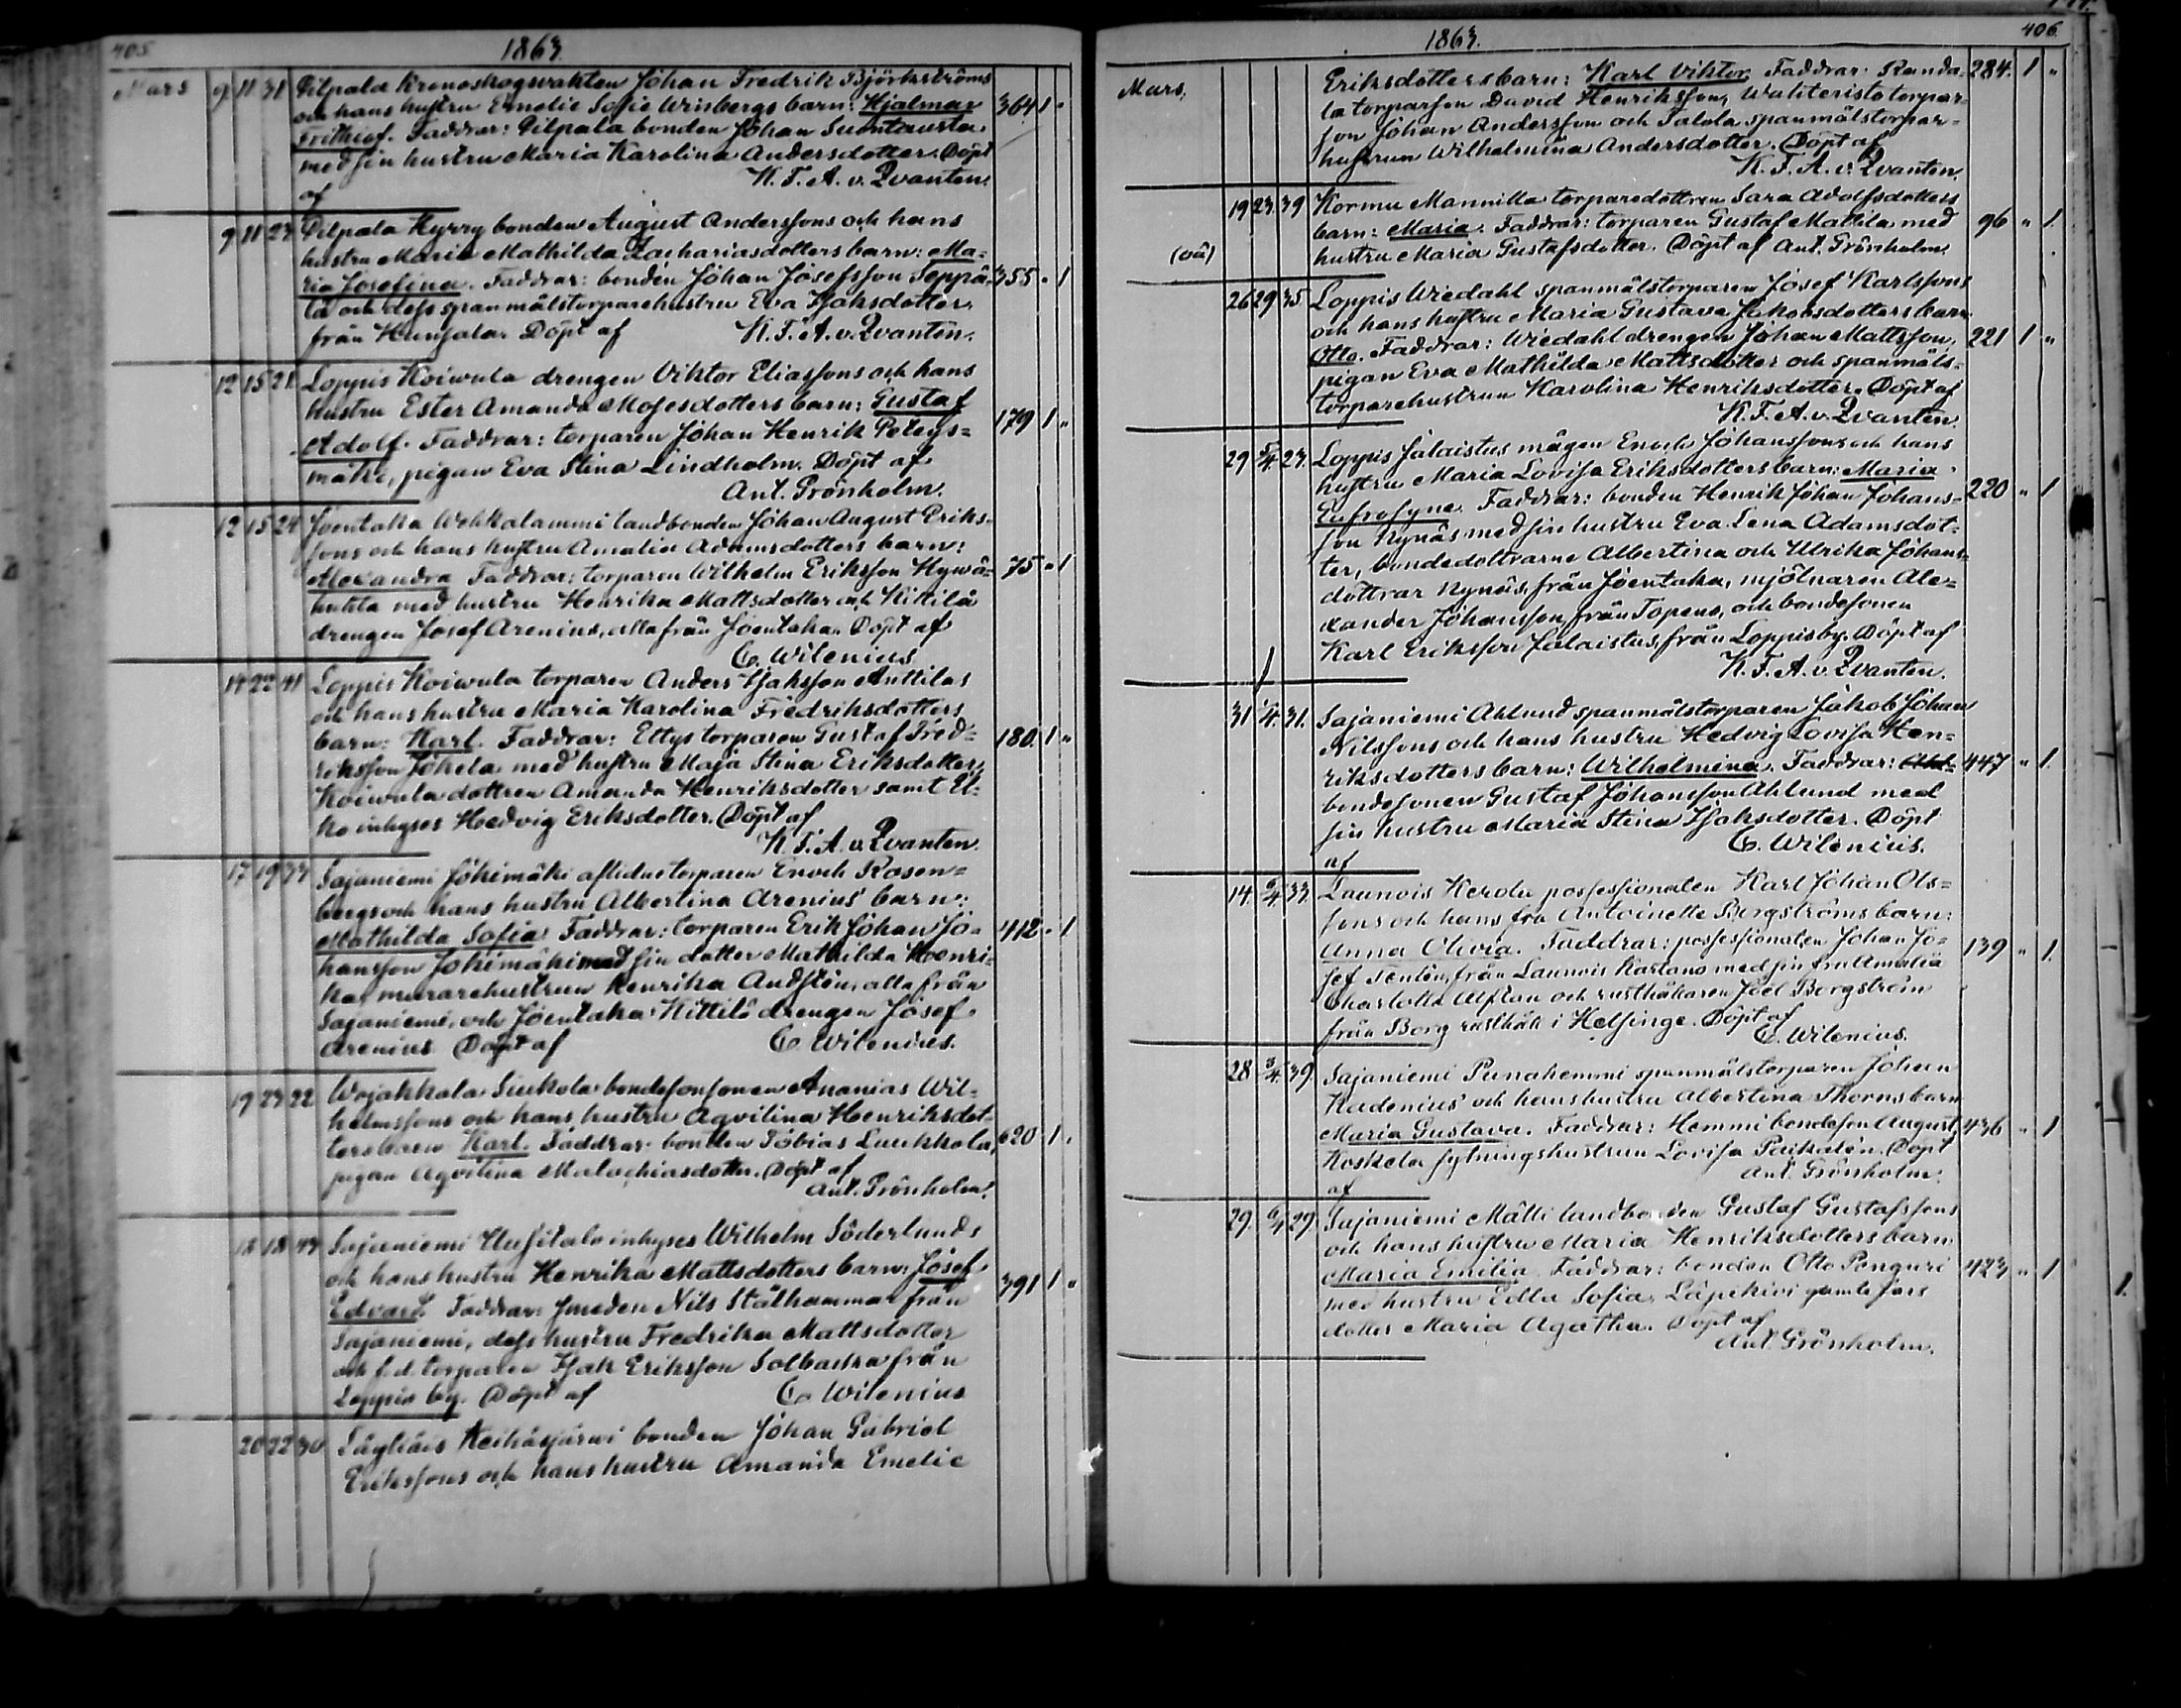 405
1863
Mars 9 11 31 Pilpala kronoskogswakten Johan Fredrik Björkströms
och hans hustru Emelie Sofie Wrisbergs barn: Hjalmar 364 1 "
Frithiof. Faddrar: Pilpala bonden Johan Suontausta
med sin hustru Maria Karolina Andersdotter. Döpt
af K. F. A. v. Qvanten.
9 11 27 Pilpala Kyrry bonden August Anderssons och hans
hustru Maria Mathilda Zachariasdotters barn: Ma-
ria Josefina. Faddrar: bonden Johan Josefsson Seppä- 355 " 1
lä och dess spanmålstorparehustru Eva Isaksdotter
från Hunsala. Döpt af K. F. A. v. Qvanten.
12 15 21 Loppis Koiwula drengen Viktor Eliassons och hans
hustru Ester Amanda Mosesdotters barn: Gustaf
Adolf. Faddrar: torparen Johan Henrik Poteys- 179 1 "
mäki, pigan Eva Stina Lindholm. Döpt af
Ant. Grönholm.
12 15 24 Joentaka Wehkalammi landbonden Johan August Eriks-
sons och hans hustru Amalia Adamsdotters barn:
Alexandra. Faddrar: torparen Wilhelm Eriksson Hywä- 75 " 1
hukka med hustru Henrika Mattsdotter och Kittilä
drengen Josef Arenius, alla från Joentaka. Döpt af
C. Wilenius
14 22 41 Loppis Koiwula torparen Anders Isaksson Anttilas
och hans hustru Maria Karolina Fredriksdotters
barn: Karl. Faddrar: Ettys torparen Gustaf Fred- 180. 1 "
riksson Jokela med hustru Maja Stina Eriksdotter,
Koiwula dottren Amanda Henriksdotter samt El-
ko inhyses Hedvig Eriksdotter. Döpt af
K. F. A. v. Qvanten.
17 19 33 Sajaniemi Jokimäki aflidne torparen Enoch Rosen-
bergs och hans hustru Albertina Arenius' barn:
Mathilda Sofia. Faddrar: torparen Erik Johan Jo- 412 " 1
hansson Jokimäki med sin dotter Mathilda Henri-
ka, murarehustrun Henrika Andstén, alla från
Sajaniemi, och Joentaka Kittilä drengen Josef
Arenius. Döpt af C. Wilenius.
19 23 22 Wojakkala Siukola bondesonsonen Ananias Wil-
helmssons och hans hustru Aqvilina Henriksdot-
ters barn Karl. Faddrar: bonden Tobias Luukkola, 620 1 "
pigan Aqvilina Malachiasdotter. Döpt af
Ant. Grönholm.
18 18 43 Sajaniemi Uusitalo inhyses Wilhelm Söderlunds
och hans hustru Henrika Mattsdotters barn: Josef
Edvard. Faddrar: smeden Nils Stålhammar från 391 1 "
Sajaniemi, dess hustru Fredrika Mattsdotter
och f.d. torparen Isak Eriksson Solbacka från
Loppis by. Döpt af C. Wilenius
20 22 30 Läyliäis Keihäsjärwi bonden Johan Gabriel
Erikssons och hans hustru Amanda Emelie
406
1863.
Mars. Eriksdotters barn: Karl Viktor. Faddrar: Randa- 284. 1 "
la torparson David Henriksson, Wahteristo torpar-
son Johan Andersson och Salola spanmålstorpar-
hustrun Wilhelmina Andersdotter. Döpt af
K. F. A. v. Qvanten.
19 23 39 Kormu Mannilla torparedottren Sara Adolfsdotters
(oä) barn: Maria. Faddrar: torparen Gustaf Mattila med 96 " 1.
hustru Maria Gustafsdotter. Döpt af Ant. Grönholm.
26 29 35 Loppis Wiedahl spanmålstorparen Josef Karlssons
och hans hustru Maria Gustava Jakobsdotters barn
Otto. Faddrar: Wiedahl drengen Johan Mattsson, 221 1 "
pigan Eva Mathilda Mattsdotter och spanmåls-
torparehustrun Karolina Henriksdotter. Döpt af
K. F. A. v. Qvanten.
29 5/4. 23. Loppis Jalaistus mågen Enoch Johanssons och hans
hustru Maria Lovisa Eriksdotters barn: Maria
Eufrosyne. Faddrar: bonden Henrik Johan Johans- 220 " 1
son Nynäs med sin hustru Eva Lena Adamsdot-
ter, bondedöttrarne Albertina och Ulrika Johans-
döttrar Nynäs, från Joentaka, mjölnaren Ale-
xander Johansson, från Topeno, och bondesonen
Karl Eriksson Jalaistus, från Loppis by. Döpt af
K. F. A. v. Qvanten.
31 1/4. 31. Sajaniemi Ahlund spanmålstorparen Jakob Johan
Nilssons och hans hustru Hedvig Lovisa Hen-
riksdotters barn: Wilhelmina. Faddrar: 447 " 1.
bondesonen Gustaf Johansson Ahlund med
sin hustru Maria Stina Isaksdotter. Döpt
af C. Wilenius.
14. 6/4 33. Launois Kerola possessionaten Karl Johan Ols-
sons och hans fru Antoinette Bergströms barn:
Anna Olivia. Faddrar: possessionaten Johan Jo- 139 " 1.
sef Tentén, från Launois Kartano med sin fru Amalia
Charlotta Alftan och rusthållaren Joel Bergström
från Borg rusthåll i Helsinge. Döpt af
C. Wilenius.
28 3/4. 39. Sajaniemi Punahemmi spanmålstorparen Johan
Kadenius' och hans hustru Albertina Thorns barn
Maria Gustava. Faddrar: Hemmi bondeson August 436 " 1
Koskela sytningshustrun Lovisa Paikalén. Döpt
af Ant. Grönholm.
29. 6/4 29. Sajaniemi Mälli landbonden Gustaf Gustafssons
och hans hustru Maria Henriksdotters barn
Maria Emilia. Faddrar: bonden Otto Penguri 423 " 1
med hustru Edla Sofia, Läpikivi gamle fars
dotter Maria Agatha. Döpt af
Ant. Grönholm.
1.